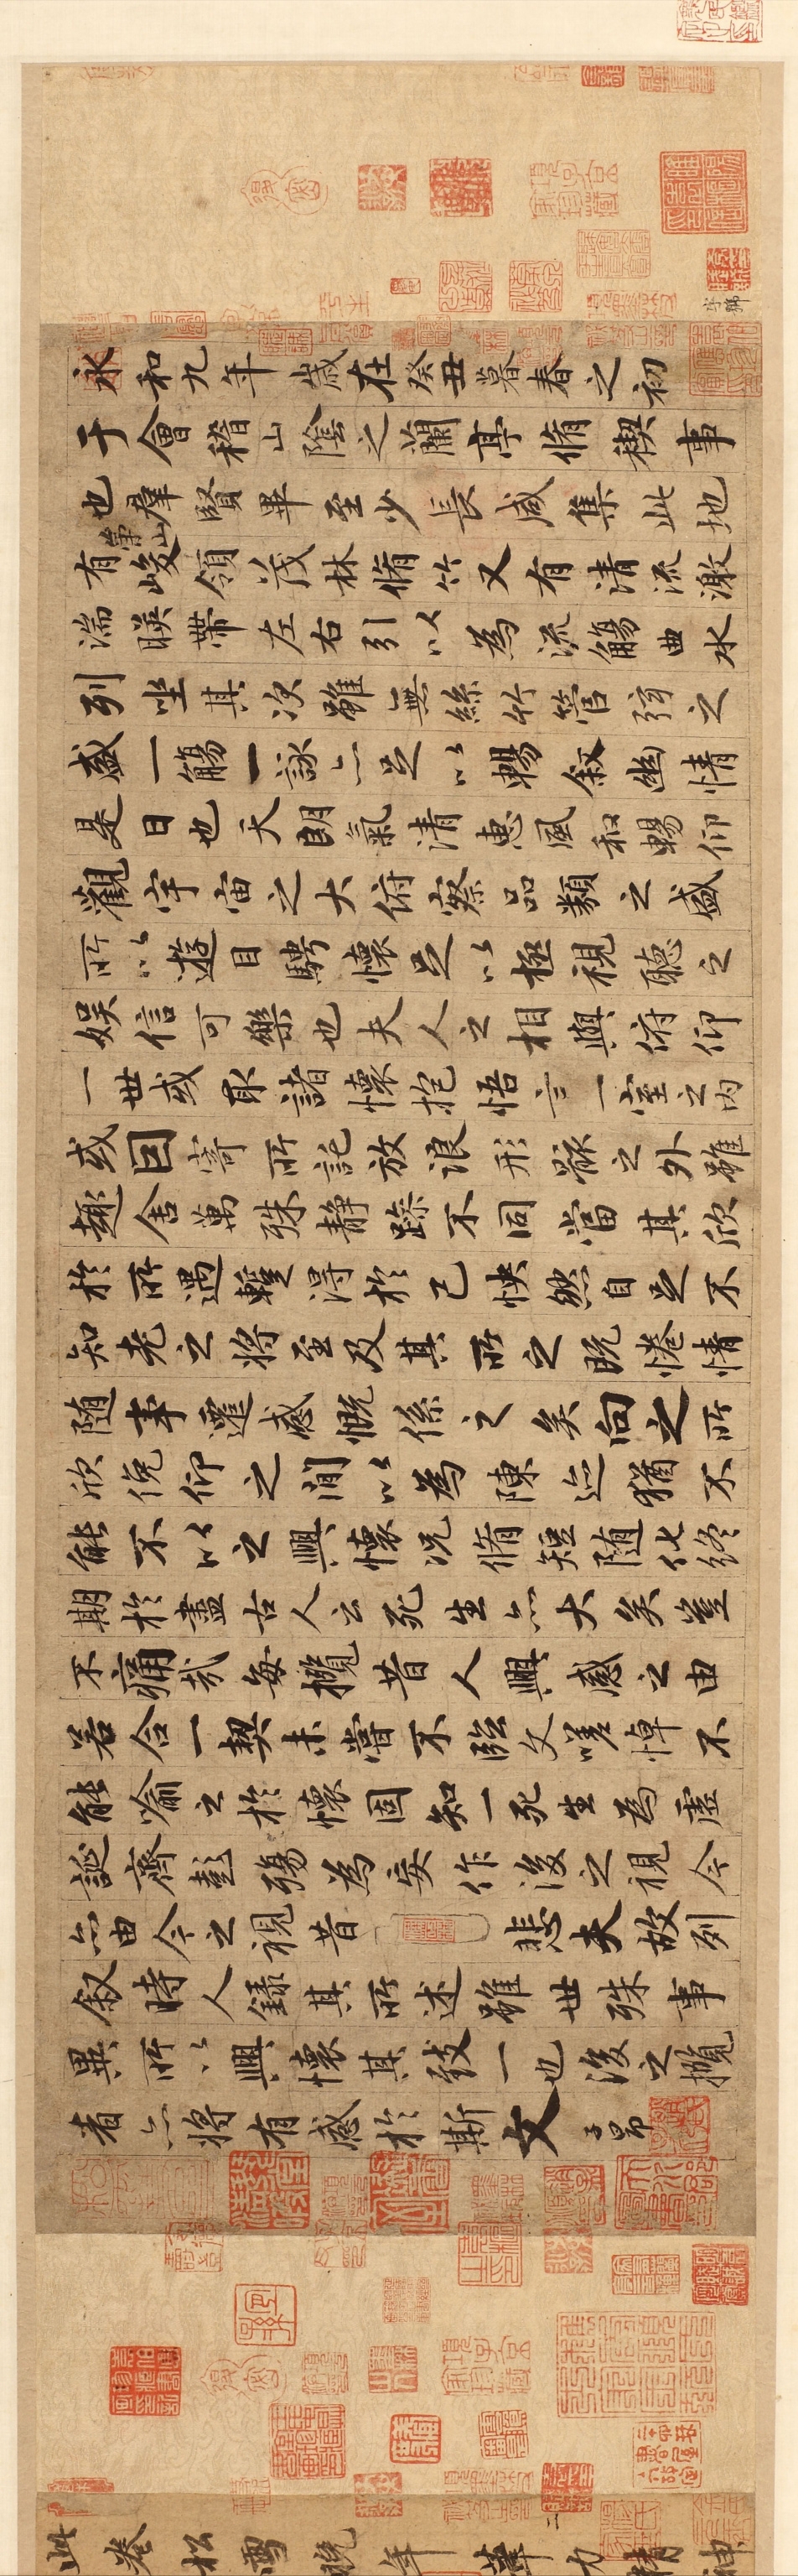 永和九年歳在癸丑暮春之初
于會稽山陰之蘭亭脩禊事
也羣賢畢至少長咸集此地
有崇山峻領茂林脩竹又有清流激
湍暎帶左右引以為流觴曲水
列坐其次雖無絲竹管弦之
盛一觴一詠亦足以暢叙幽情
是日也天朗氣清惠風和暢仰
觀宇宙之大俯察品類之盛
所以遊目騁懷足以極視聽之
娛信可樂也夫人之相與俯仰
一世或取諸懷抱悟言一室之内
或因寄所託放浪形骸之外雖
趣舍萬殊静躁不同當其欣
於所遇蹔得於己怏然自足不
知老之將至及其所之既惓情
随事遷感慨係之矣向之所
欣俛仰之間以為陳迹猶不
能不以之興懷況脩短随化終
期於盡古人云死生亦大矣豈
不痛哉每攬昔人興感之由
若合一契未嘗不臨文嗟悼不
能喻之於懷固知一死生為虛
誕齊彭殤為妄作後之視今
亦由今之視昔悲夫故列
叙時人録其所述雖世殊事
異所以興懷其致一也後之攬
者亦將有感於斯文 子昂
此卷松雪晚年筆力精神